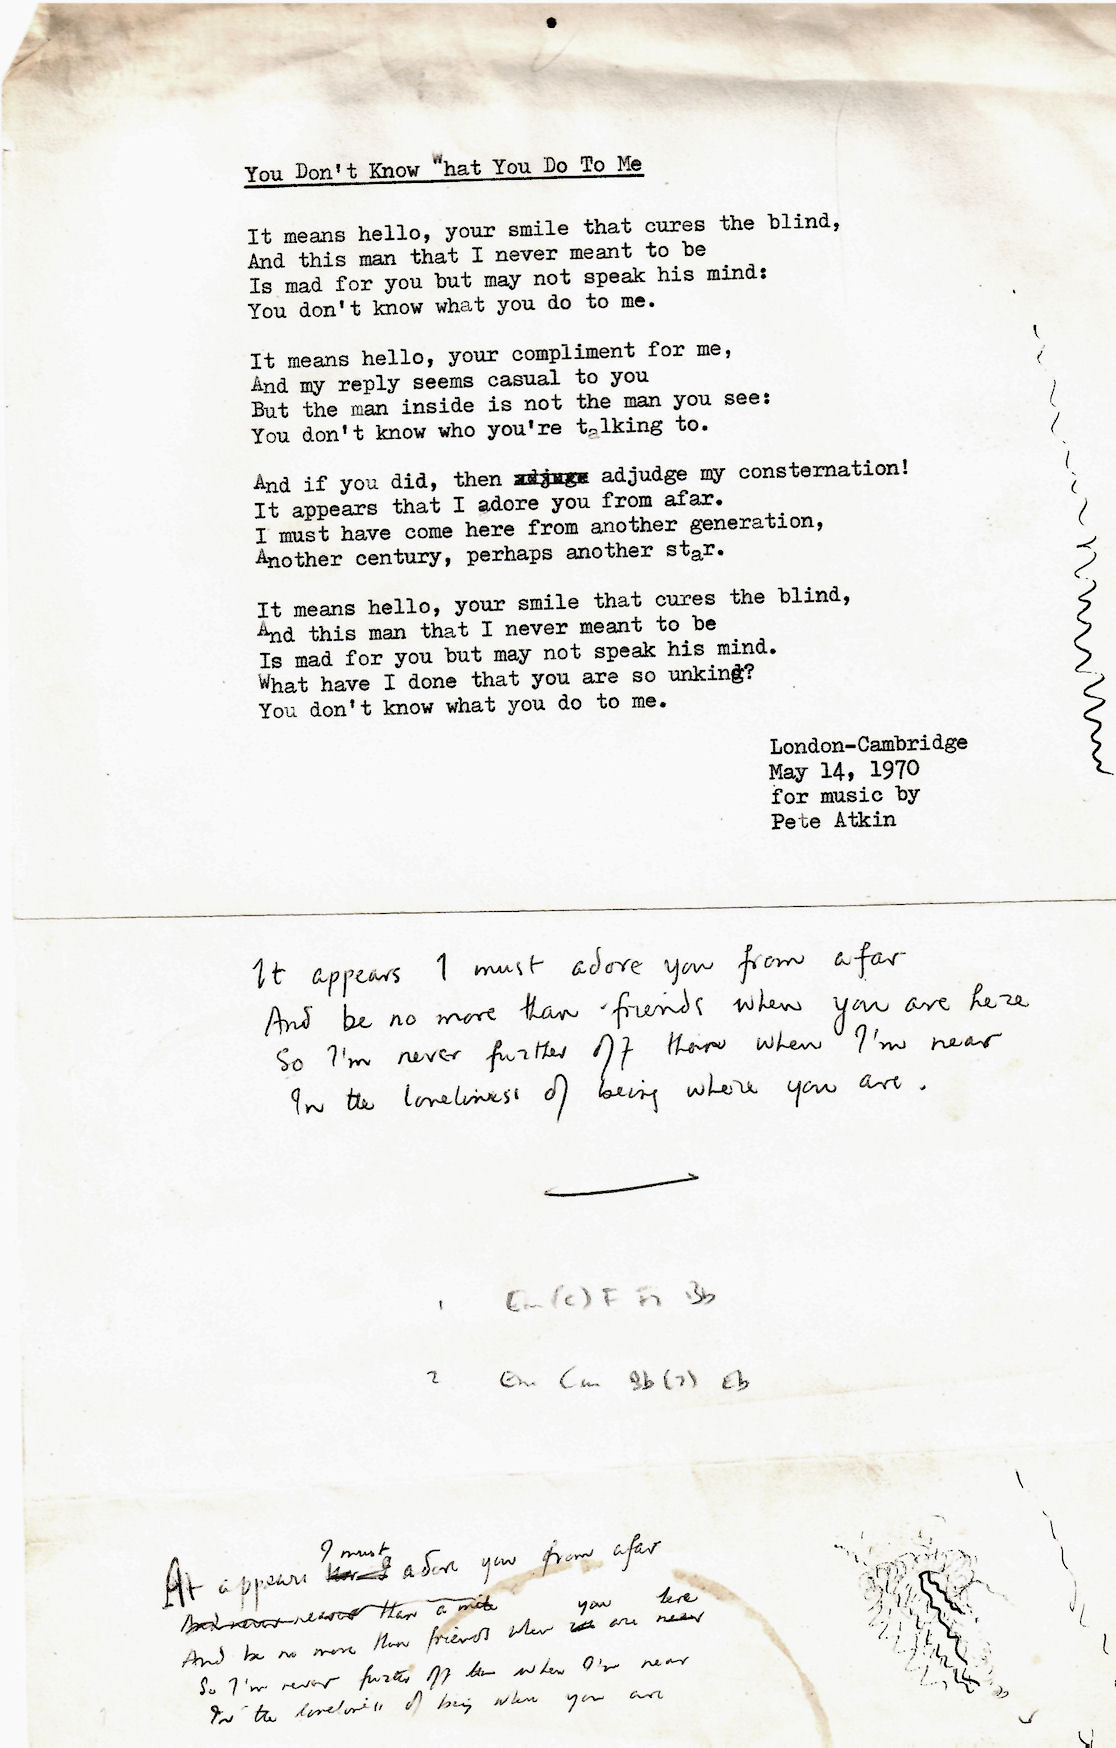 You Don't Know What You Do To Me
It means hello, your smile that cures the blind,
And this man that I never meant to be
Is mad for you but may not speak his mind:
You don't know what you do to me.
It means hello, your compliment for me,
And my reply seems casual to you
But the man inside is not the man you see:
You don't know who you're talking to.
And if you did, then adjuge adjudge my consternation!
It appears that I adore you from afar.
I must have come here from another generation,
Another century, perhaps another star.
It means hello, your smile that cures the blind,
And this man that I never meant to be
Is mad for you but may not speak his mind.
What have I done that you are so unkind?
You don't know what you do to me.
London-Cambridge
May 14, 1970
for music by
Pete Atkin
It appears I must adore you from afar
And be no more than friends when you are here
So I'm never further off than when I'm near
In the loneliness of being where you are.
1 Em (C) F F7 Bb
2 Gm Cm Bb (7) Eb
I must
It appears adore you from afar
And never nearer than a mile
you here
And be no more than friends when are near
So I'm never further off than when I'm near
In the loneliness of being where you are